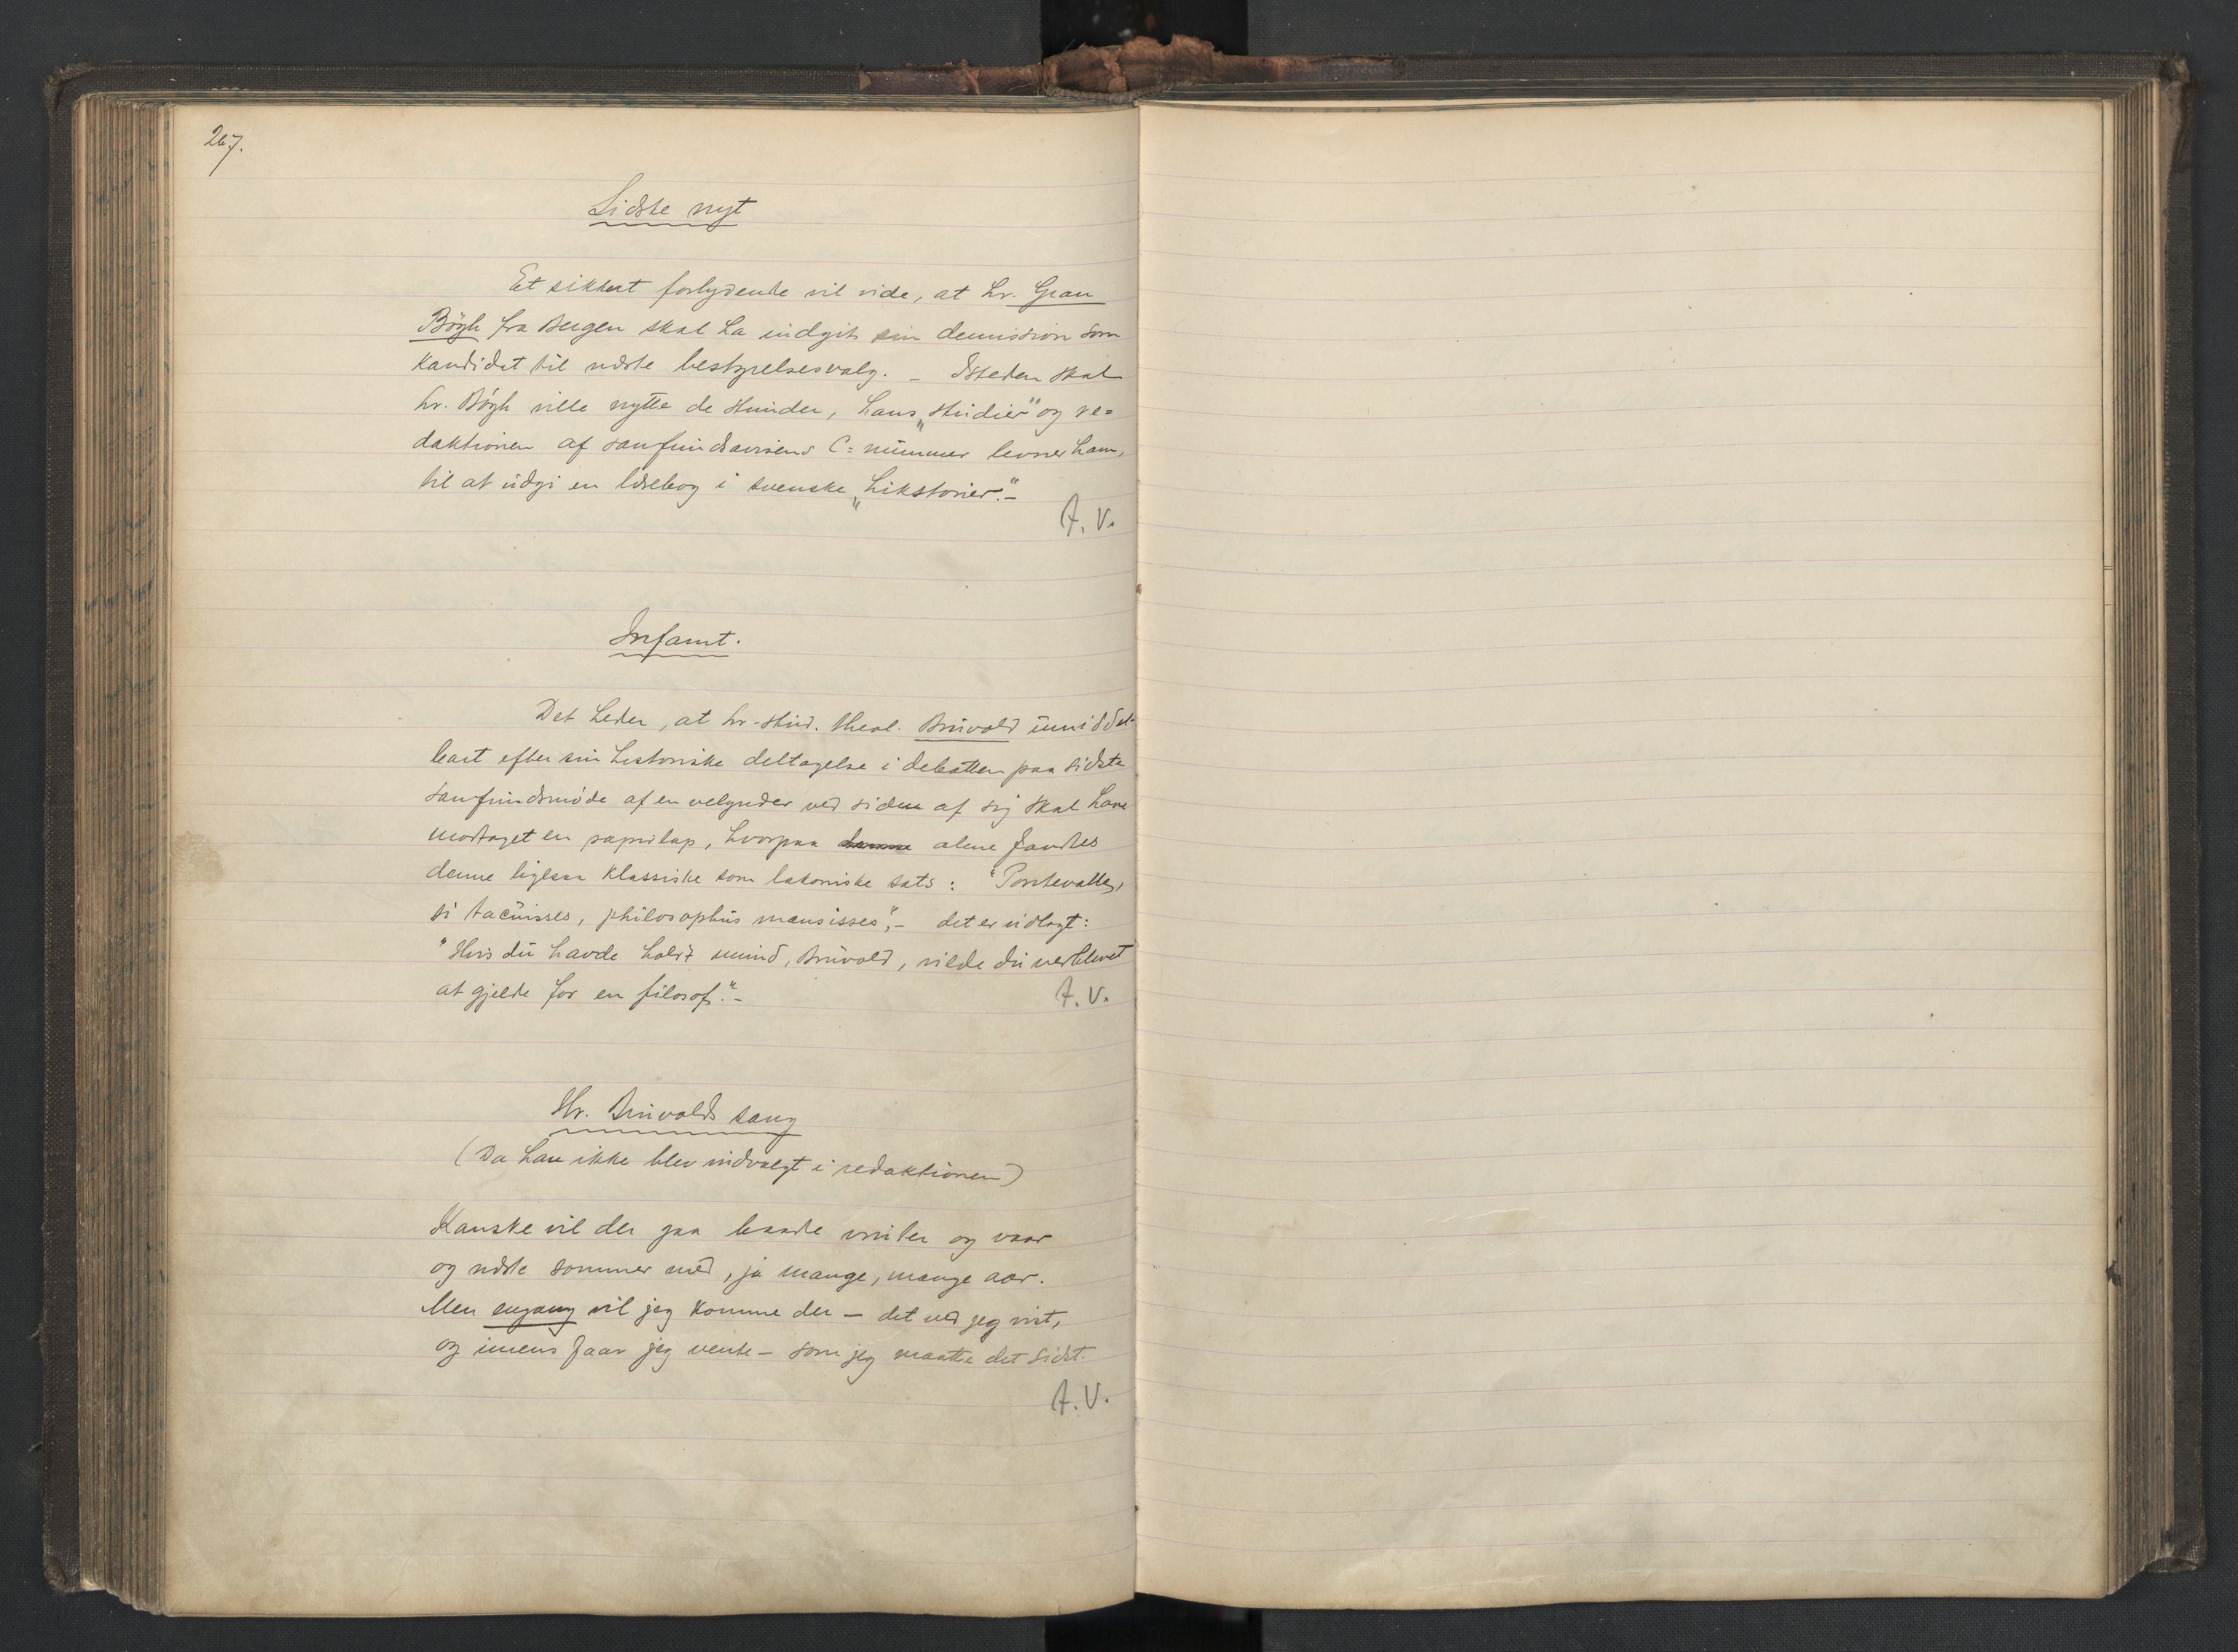 267.
Sidste nyt
Et sikkert forlydende vil vide, at hr. Gran
Bögh fra Bergen skal ha indgit sin demission som
kandidat til næste bestyrelsesvalg. – Isteden skal
hr. Bögh ville nytte de stunder, hans „studier" og re=
daktionen af samfundsavisens C=nummer levner ham,
til at udgi en læsebog i svenske „Likstorier."–
A. V.
Infamt.
Det heder, at hr. stud. theol. Bruvold umiddel-
bart efter sin historiske deltagelse i debatten paa sidste
samfundsmøde af en velynder ved siden af sig skal have
modtaget en papirlap, hvorpaa alene fandtes
denne ligesaa klassiske som lakoniske sats: "Pontevalles,
si tacuisses, philosophus mansisses",– det er udlagt:
"Hvis du havde holdt mund, Bruvold, vilde du vedblevet
at gjelde for en filosof."–
A. V.
Hr. Bruvolds sang
(Da han ikke blev indvalgt i redaktionen)
Kanske vil der gaa baade vinter og vaar
og næste sommer med, ja mange, mange aar.
Men engang vil jeg komme der – det ved jeg vist,
og imens faar jeg vente – som jeg maatte det sidst.
A. V.